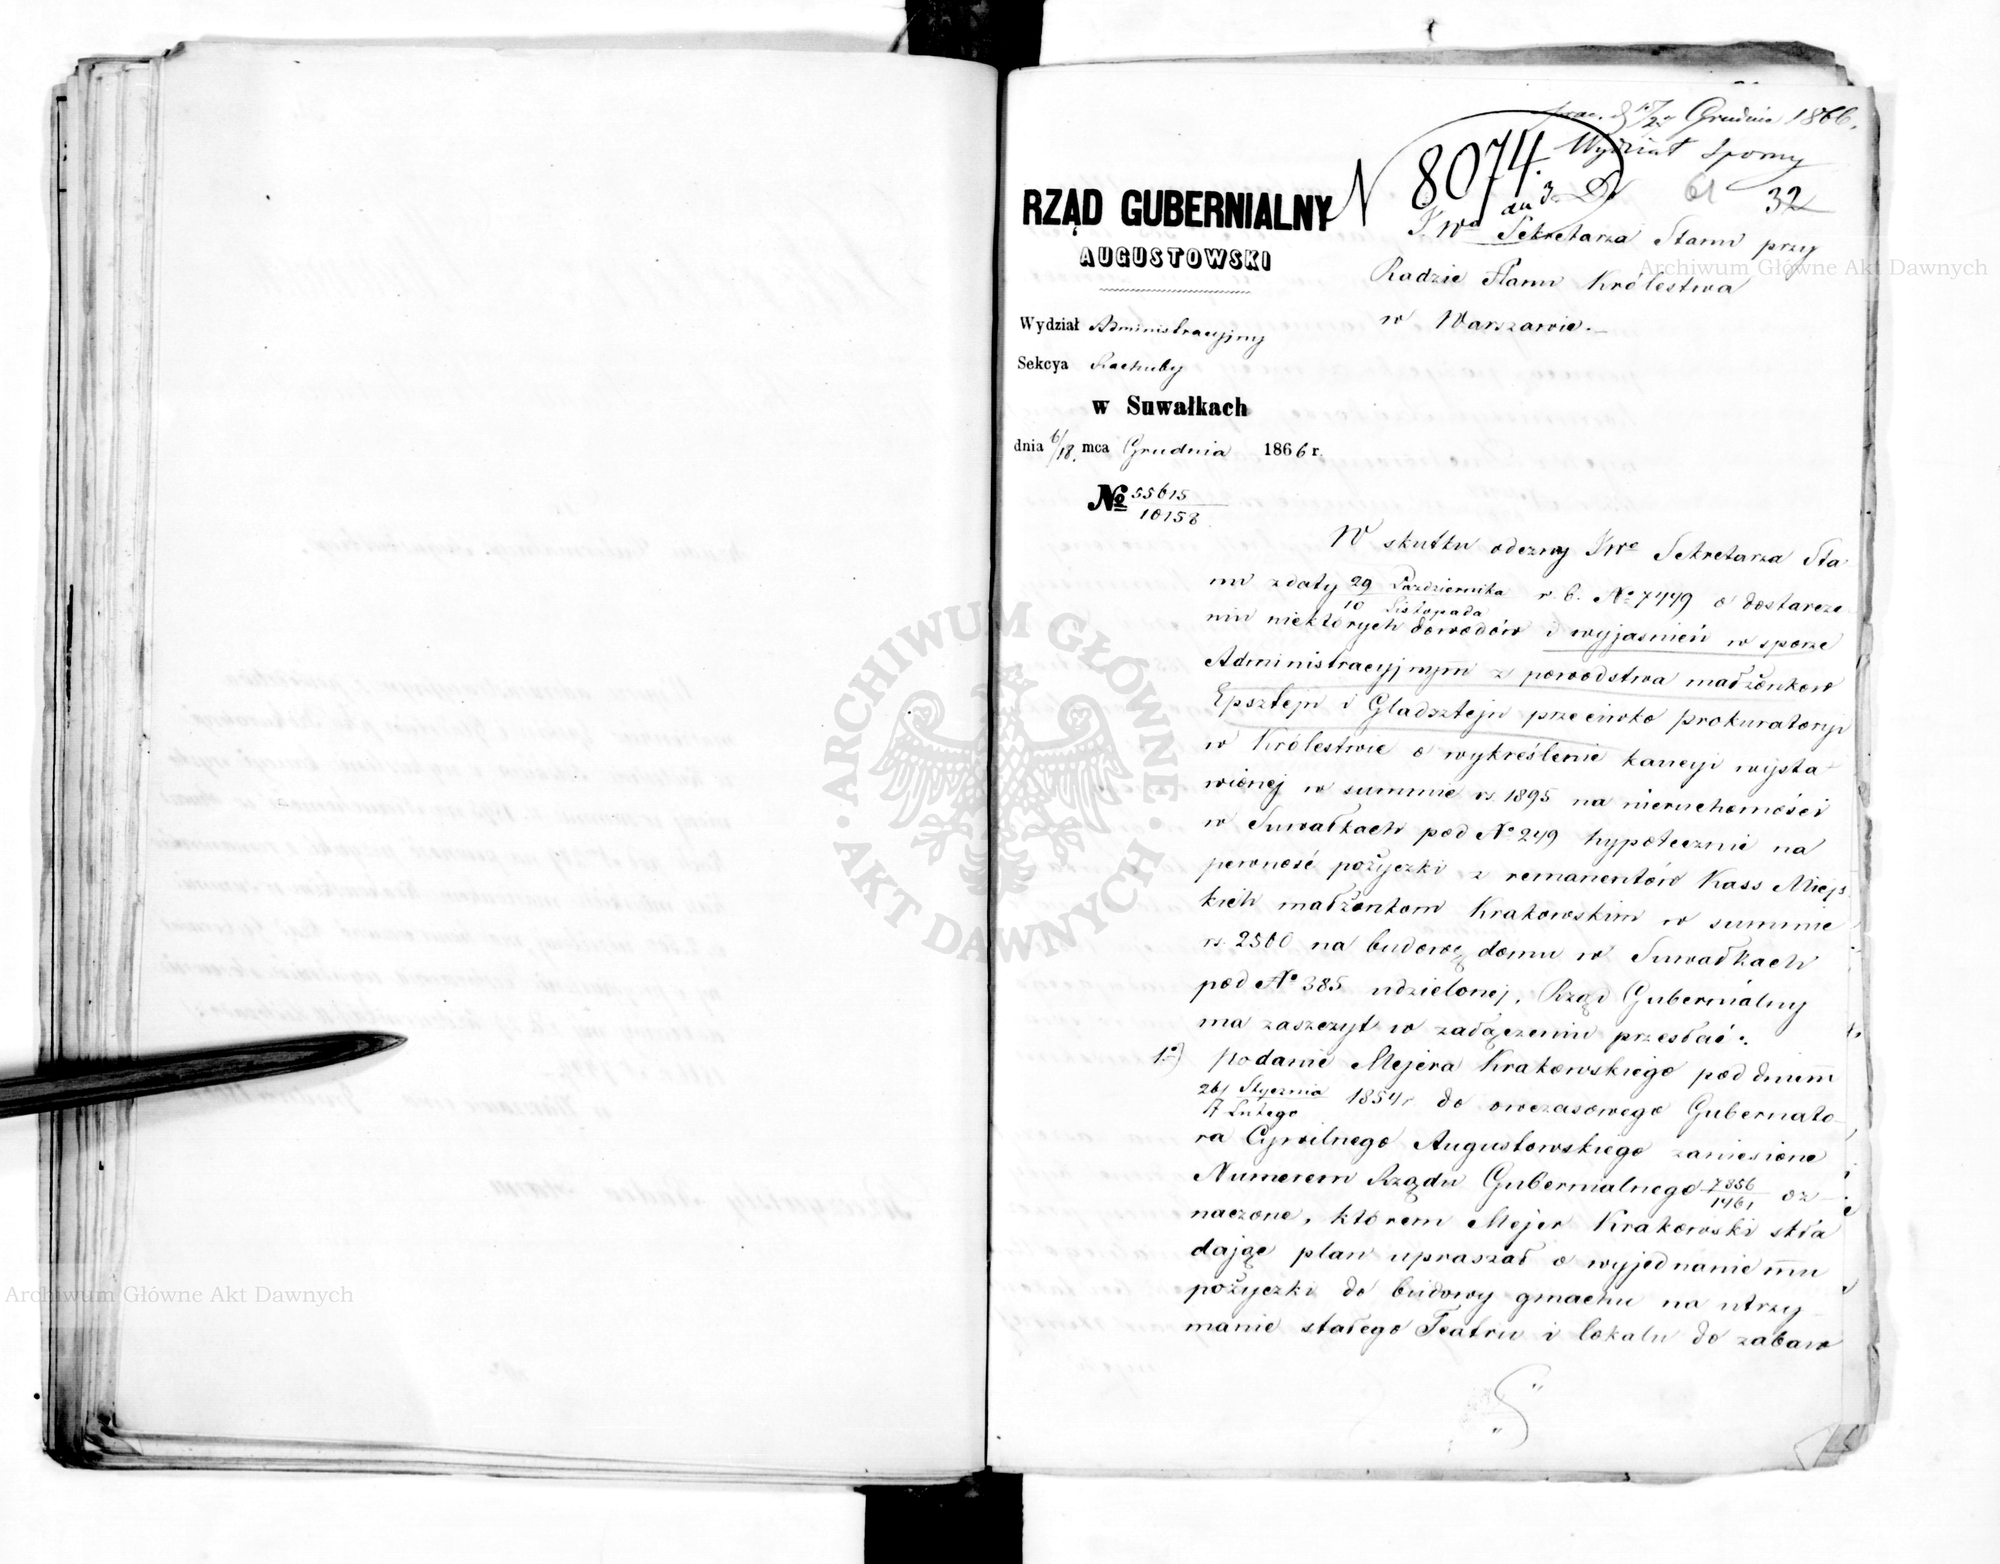 Grudnia 1866.
Wydział Sporny
N 8074.
61 32
RZĄD GUBERNIALNY
AUGUSTOWSKI
Wydział Administracyjny
Sekcya Rachuby
w Suwałkach
dnia 6/18 mca Grudnia 1866 r.
№ 55615/10158
Do JWo Sekretarza Stanu przy
Radzie Stanu Królestwa
w Warszawie.
W skutku odezwy JWo Sekretarza Sta
nu z daty 29 Października/10 Listopada r. b. No 7449 o dostarcze
niu niektórych dowodów i wyjaśnień w sporze
Administracyjnym z powodstwa małżonków
Epsztejn i Gladsztejn przeciwko prokuratoryi
w Królestwie o wykreślenie kaucyi wysta
wionej w summie rs. 1895 na nieruchomości
w Suwałkach pod No 249 hypotecznie na
pewność pożyczki z remanentów Kass Miejs
kich małżonkom Krakowskim w summie
rs. 2500 na budowę domu w Suwałkach
pod No 385 udzielonej, Rząd Gubernialny
ma zaszczyt w załączeniu przesłać:
1o) podanie Mejera Krakowskiego pod dniem
26 Stycznia/7 Lutego 1854 r. do owczasowego Gubernato
ra Cywilnego Augustowskiego zaniesione
Numerem Rządu Gubernialnego 7856/1461 oz
naczone, którem Mejer Krakowski skła
dając plan upraszał o wyjednanie mu
pożyczki do budowy gmachu na utrzy
manie stałego Teatru i lokalu do zabaw
ARCHIWUM GŁÓWNE AKT DAWNYCH
Archiwum Główne Akt Dawnych
Archiwum Główne Akt Dawnych